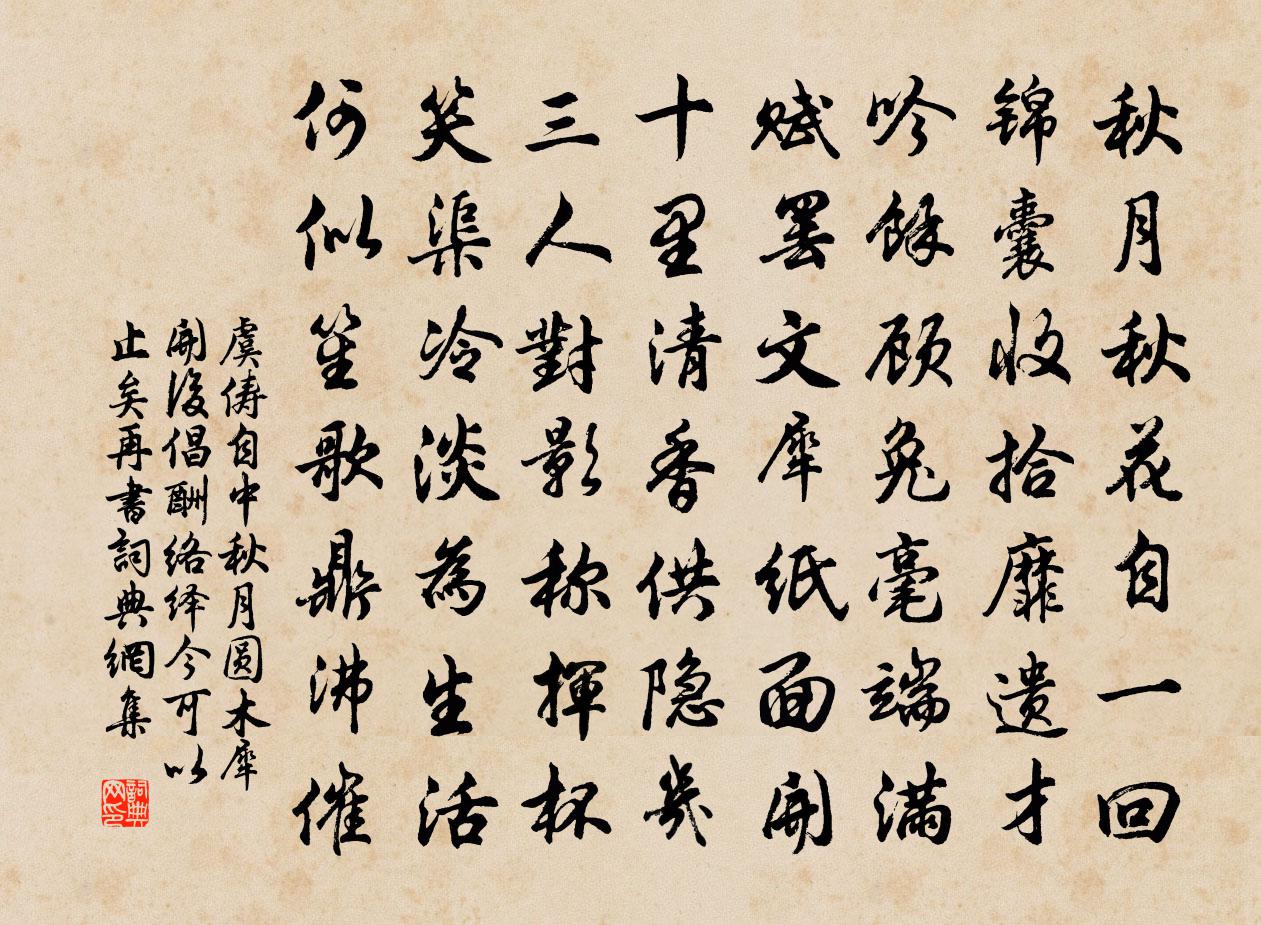 秋月秋花自一回
锦囊收拾靡遗才
吟餘顾兔毫端满
赋罢文犀紙面開
十里清香供隐幾
三人對影称揮杯
笑渠冷淡為生活
何似笙歌鼎沸催
虞俦自中秋月圆木犀
開後倡酬络绎今可以
止矣再書詞典網集
詞典网印